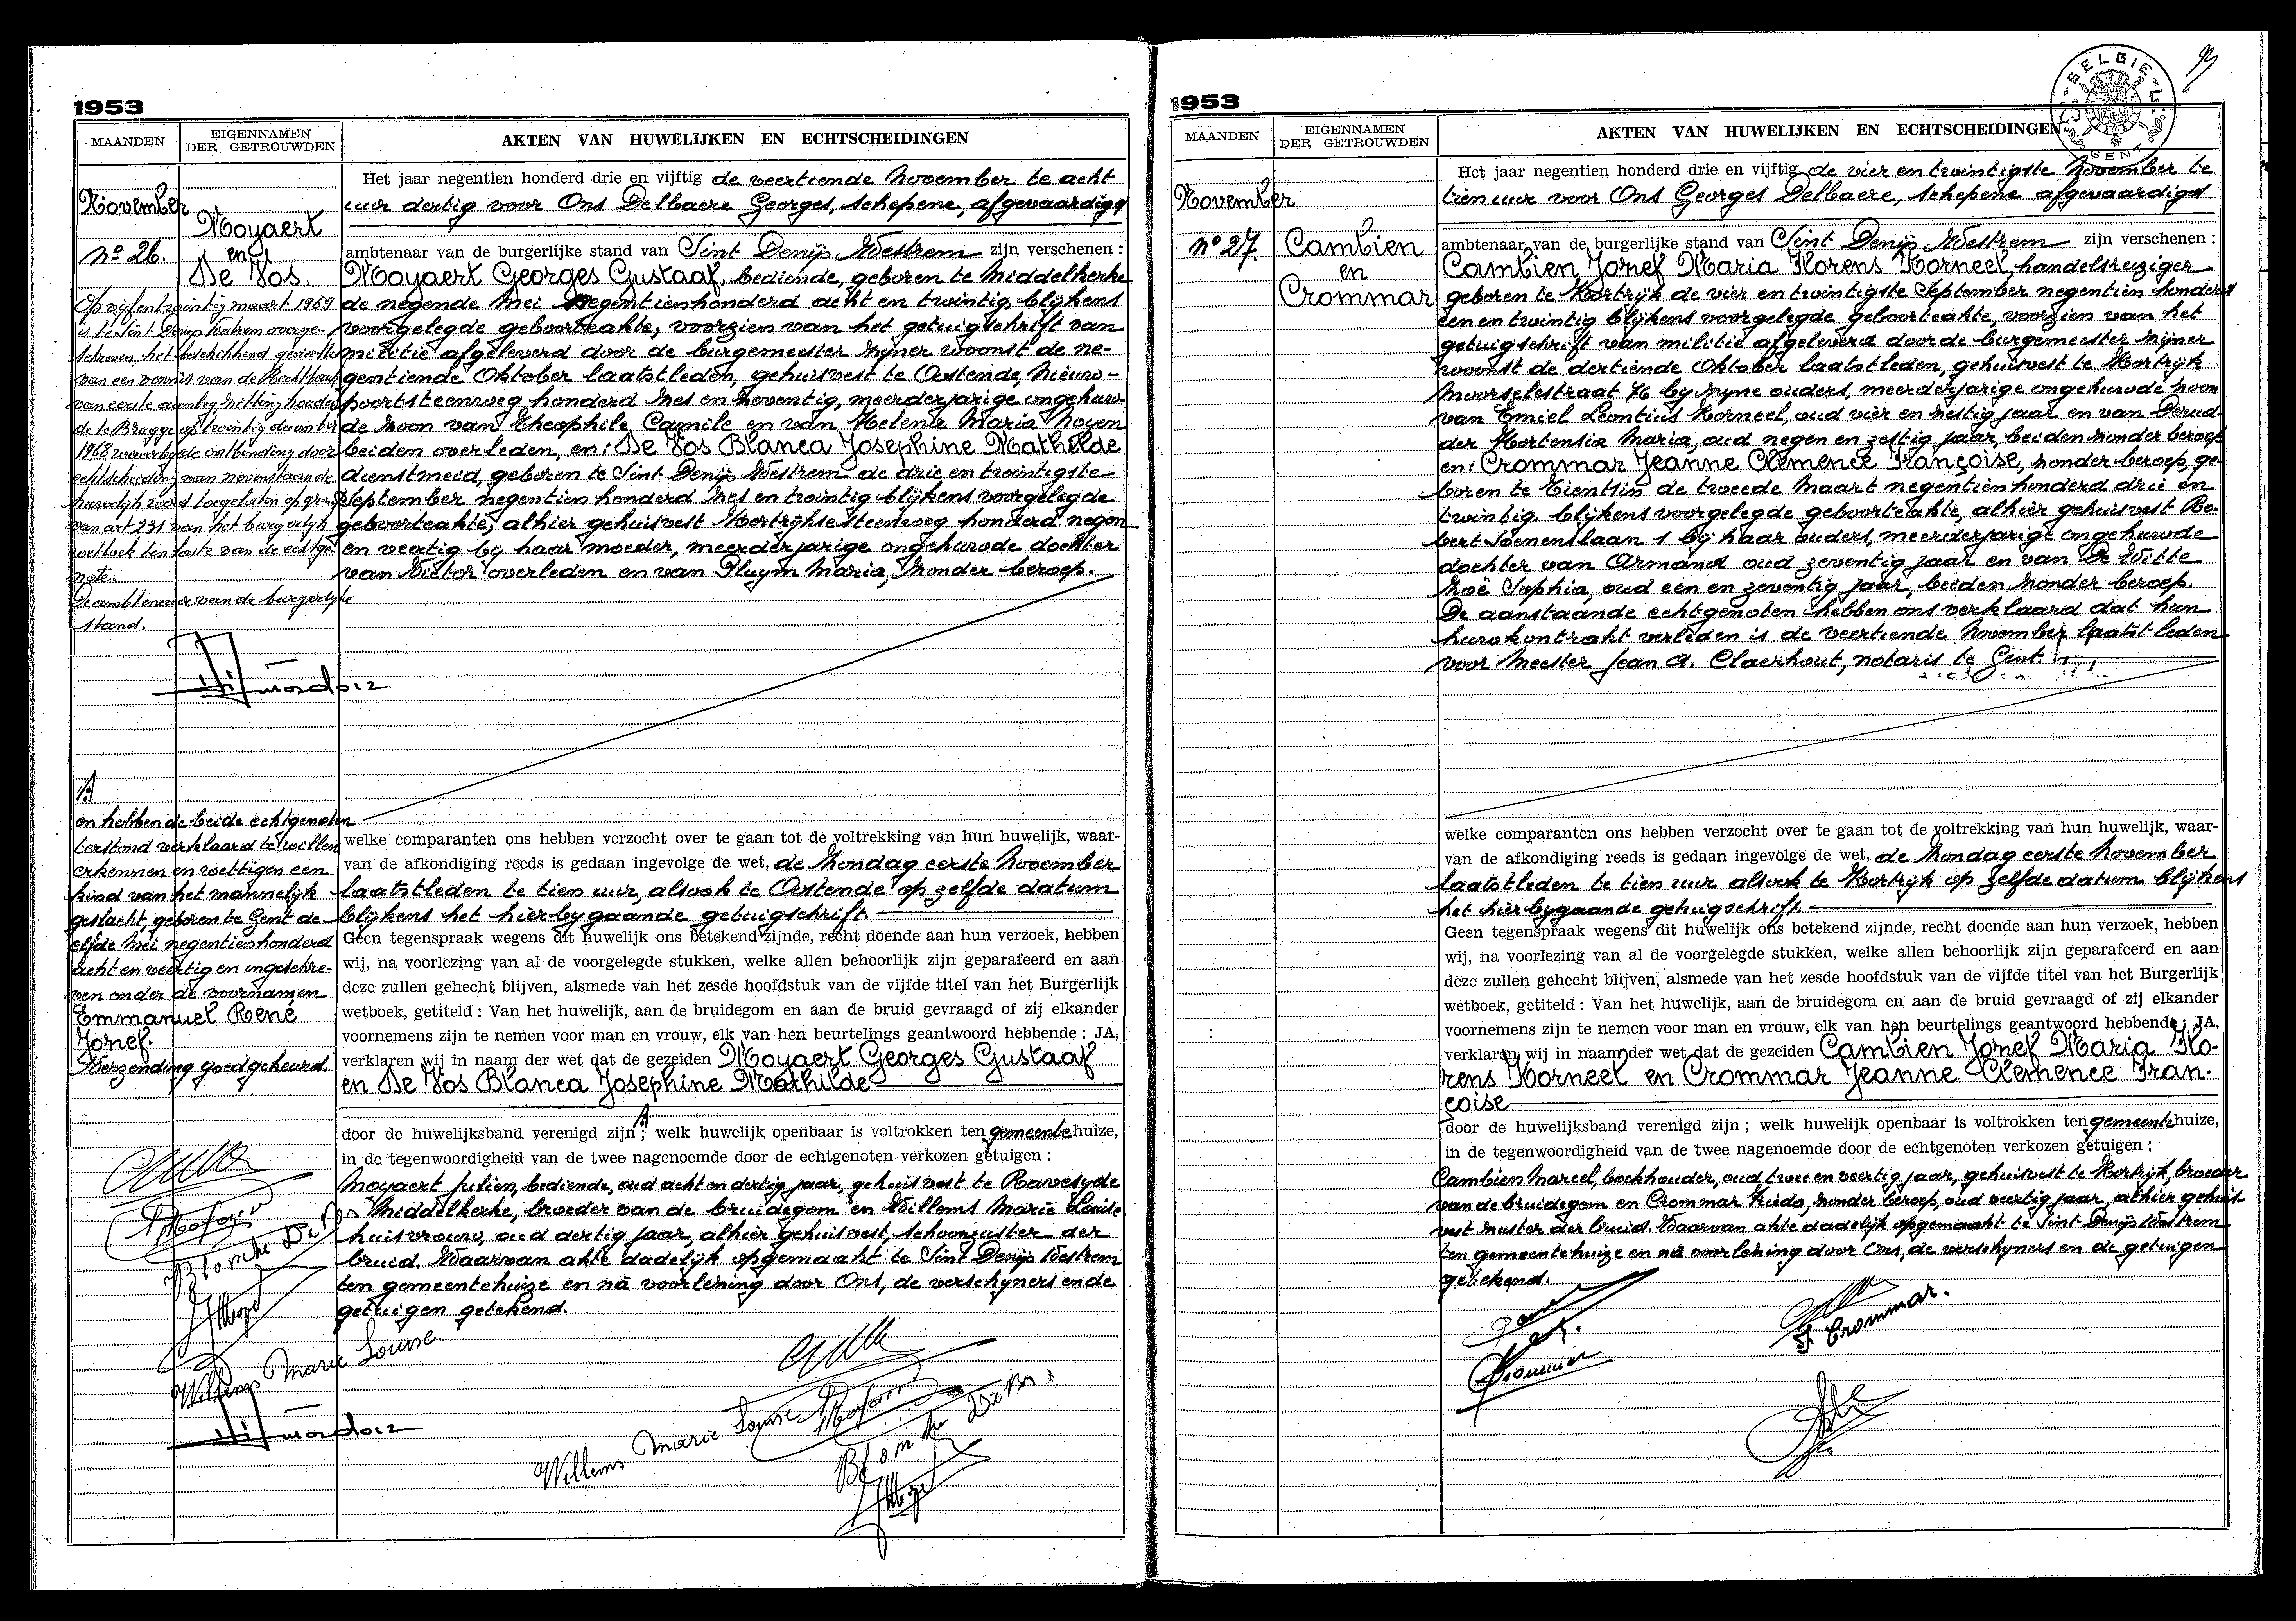 1953
MAANDEN
EIGENNAMEN
DER GETROUWDEN
AKTEN VAN HUWELIJKEN EN ECHTSCHEIDINGEN
November
No 26.
Moyaert
en
De Vos.
Op vijf en twintig maart 1969
is te Sint Denijs Westrem overge-
schreven, het beschikkend gedeelte
van een vonnis van de Rechtbank
van eerste aanleg zitting houden
de te Brugge op twintig december
1968 waarbij de ontbinding door
echtscheiding van nevenstaande
huwelijk word toegelaten op grond
van art 231 van het burgerlijk
wetboek ten laste van de echtge-
note.
De ambtenaar van de burgerlijke
stand.
A
en hebben de beide echtgenoten
terstond verklaard te willen
erkennen en wettigen een
kind van het mannelijk
geslacht, geboren te Gent de
elfde Mei negentienhonderd
acht en veertig en ingeschre-
ven onder de voornamen
Emmanuel René
Jozef.
Verzending goedgekeurd.
Willems Marie Louise
Het jaar negentien honderd drie en vijftig de veertiende November te acht
uur dertig voor Ons Delbaere Georges, schepene, afgevaardigd
ambtenaar van de burgerlijke stand van Sint Denijs Westrem zijn verschenen :
Moyaert Georges Gustaaf, bediende, geboren te Middelkerke
de negende Mei negentienhonderd acht en twintig, blijkens
voorgelegde geboorteakte, voorzien van het getuigschrift van
militie afgeleverd door de burgemeester zijner woonst de ne-
gentiende Oktober laatstleden, gehuisvest te Oostende, Nieuw-
poortsteenweg honderd zes en zeventig, meerderjarige ongehuw-
de zoon van Theophile Camile en van Helena Maria Noyen
beiden overleden, en: De Vos Blanca Josephine Mathilde
dienstmeid, geboren te Sint Denijs Westrem de drie en twintigste
September negentien honderd zes en twintig blijkens voorgelegde
geboorteakte, alhier gehuisvest Kortrijkse steenweg honderd negen
en veertig bij haar moeder, meerderjarige ongehuwde dochter
van Victor overleden en van Pluym Maria, zonder beroep.
welke comparanten ons hebben verzocht over te gaan tot de voltrekking van hun huwelijk, waar-
van de afkondiging reeds is gedaan ingevolge de wet, de zondag eerste November
laatstleden te tien uur, alsook te Oostende op zelfde datum
blijkens het hierbijgaande getuigschrift
Geen tegenspraak wegens dit huwelijk ons betekend zijnde, recht doende aan hun verzoek, hebben
wij, na voorlezing van al de voorgelegde stukken, welke allen behoorlijk zijn geparafeerd en aan
deze zullen gehecht blijven, alsmede van het zesde hoofdstuk van de vijfde titel van het Burgerlijk
wetboek, getiteld : Van het huwelijk, aan de bruidegom en aan de bruid gevraagd of zij elkander
voornemens zijn te nemen voor man en vrouw, elk van hen beurtelings geantwoord hebbende : JA,
verklaren wij in naam der wet dat de gezeiden Moyaert Georges Gustaaf
en De Vos Blanca Josephine Mathilde
door de huwelijksband verenigd zijn A ; welk huwelijk openbaar is voltrokken ten gemeentehuize,
in de tegenwoordigheid van de twee nagenoemde door de echtgenoten verkozen getuigen :
Moyaert Julien, bediende, oud acht en dertig jaar, gehuisvest te Raversyde
Middelkerke, broeder van de bruidegom en Willems Marie Louise
huisvrouw, oud dertig jaar, alhier gehuisvest, schoonzuster der
bruid. Waarvan akte dadelijk opgemaakt te Sint Denijs Westrem
ten gemeentehuize en nà voorlezing door Ons, de verschijners en de
getuigen getekend.
Willems Marie Louise
1953
BELGIE
GENT
MAANDEN
EIGENNAMEN
DER GETROUWDEN
AKTEN VAN HUWELIJKEN EN ECHTSCHEIDINGEN
November
No 27.
Cambien
en
Crommar
Het jaar negentien honderd drie en vijftig de vier en twintigste November te
tien uur voor Ons Georges Delbaere, schepene afgevaardigd
ambtenaar van de burgerlijke stand van Sint Denijs Westrem zijn verschenen :
Cambien Jozef Maria Korens Korneel, handelsreiziger
geboren te Kortrijk de vier en twintigste September negentien honderd
een en twintig blijkens voorgelegde geboorteakte, voorzien van het
getuigschrift van militie afgeleverd door de burgemeester zijner
woonst de dertiende Oktober laatstleden, gehuisvest te Kortrijk
Moorselestraat 76 bij zijne ouders, meerderjarige ongehuwde zoon
van Emiel Leontius Korneel, oud vier en zestig jaar en van Derud-
der Hortensia Maria, oud negen en zestig jaar, beiden zonder beroep
en: Crommar Jeanne Clemence Françoise, zonder beroep, ge-
boren te Tientsin de tweede Maart negentienhonderd drie en
twintig. blijkens voorgelegde geboorteakte, alhier gehuisvest Ro-
bert Soenenslaan 1 bij haar ouders, meerderjarige ongehuwde
dochter van Armand oud zeventig jaar en van De Witte
Zoë Sophia, oud een en zeventig jaar, beiden zonder beroep.
De aanstaande echtgenoten hebben ons verklaard dat hun
huwkontrakt verleden is de veertiende November laatstleden
voor Meester Jean A. Claerhout, notaris te Gent.
welke comparanten ons hebben verzocht over te gaan tot de voltrekking van hun huwelijk, waar-
van de afkondiging reeds is gedaan ingevolge de wet, de zondag eerste November
laatstleden te tien uur alsook te Kortrijk op zelfde datum blijkens
het hierbijgaande getuigschrift.
Geen tegenspraak wegens dit huwelijk ons betekend zijnde, recht doende aan hun verzoek, hebben
wij, na voorlezing van al de voorgelegde stukken, welke allen behoorlijk zijn geparafeerd en aan
deze zullen gehecht blijven, alsmede van het zesde hoofdstuk van de vijfde titel van het Burgerlijk
wetboek, getiteld : Van het huwelijk, aan de bruidegom en aan de bruid gevraagd of zij elkander
voornemens zijn te nemen voor man en vrouw, elk van hen beurtelings geantwoord hebbende : JA,
verklaren wij in naam der wet dat de gezeiden Cambien Jozef Maria Ko-
rens Korneel en Crommar Jeanne Clemence Fran-
çoise
door de huwelijksband verenigd zijn ; welk huwelijk openbaar is voltrokken ten gemeentehuize,
in de tegenwoordigheid van de twee nagenoemde door de echtgenoten verkozen getuigen :
Cambien Marcel, boekhouder, oud twee en veertig jaar, gehuisvest te Kortrijk, broeder
van de bruidegom en Crommar Frieda, zonder beroep, oud veertig jaar, alhier gehuis-
vest zuster der bruid. Waarvan akte dadelijk opgemaakt te Sint Denijs Westrem
ten gemeentehuize en nà voorlezing door Ons, de verschijners en de getuigen
getekend.
Crommar.